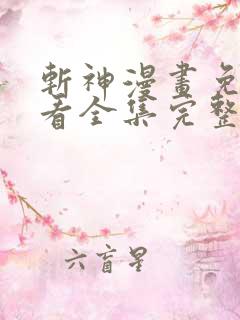 斬神漫畫免
看全集完整
六盲星